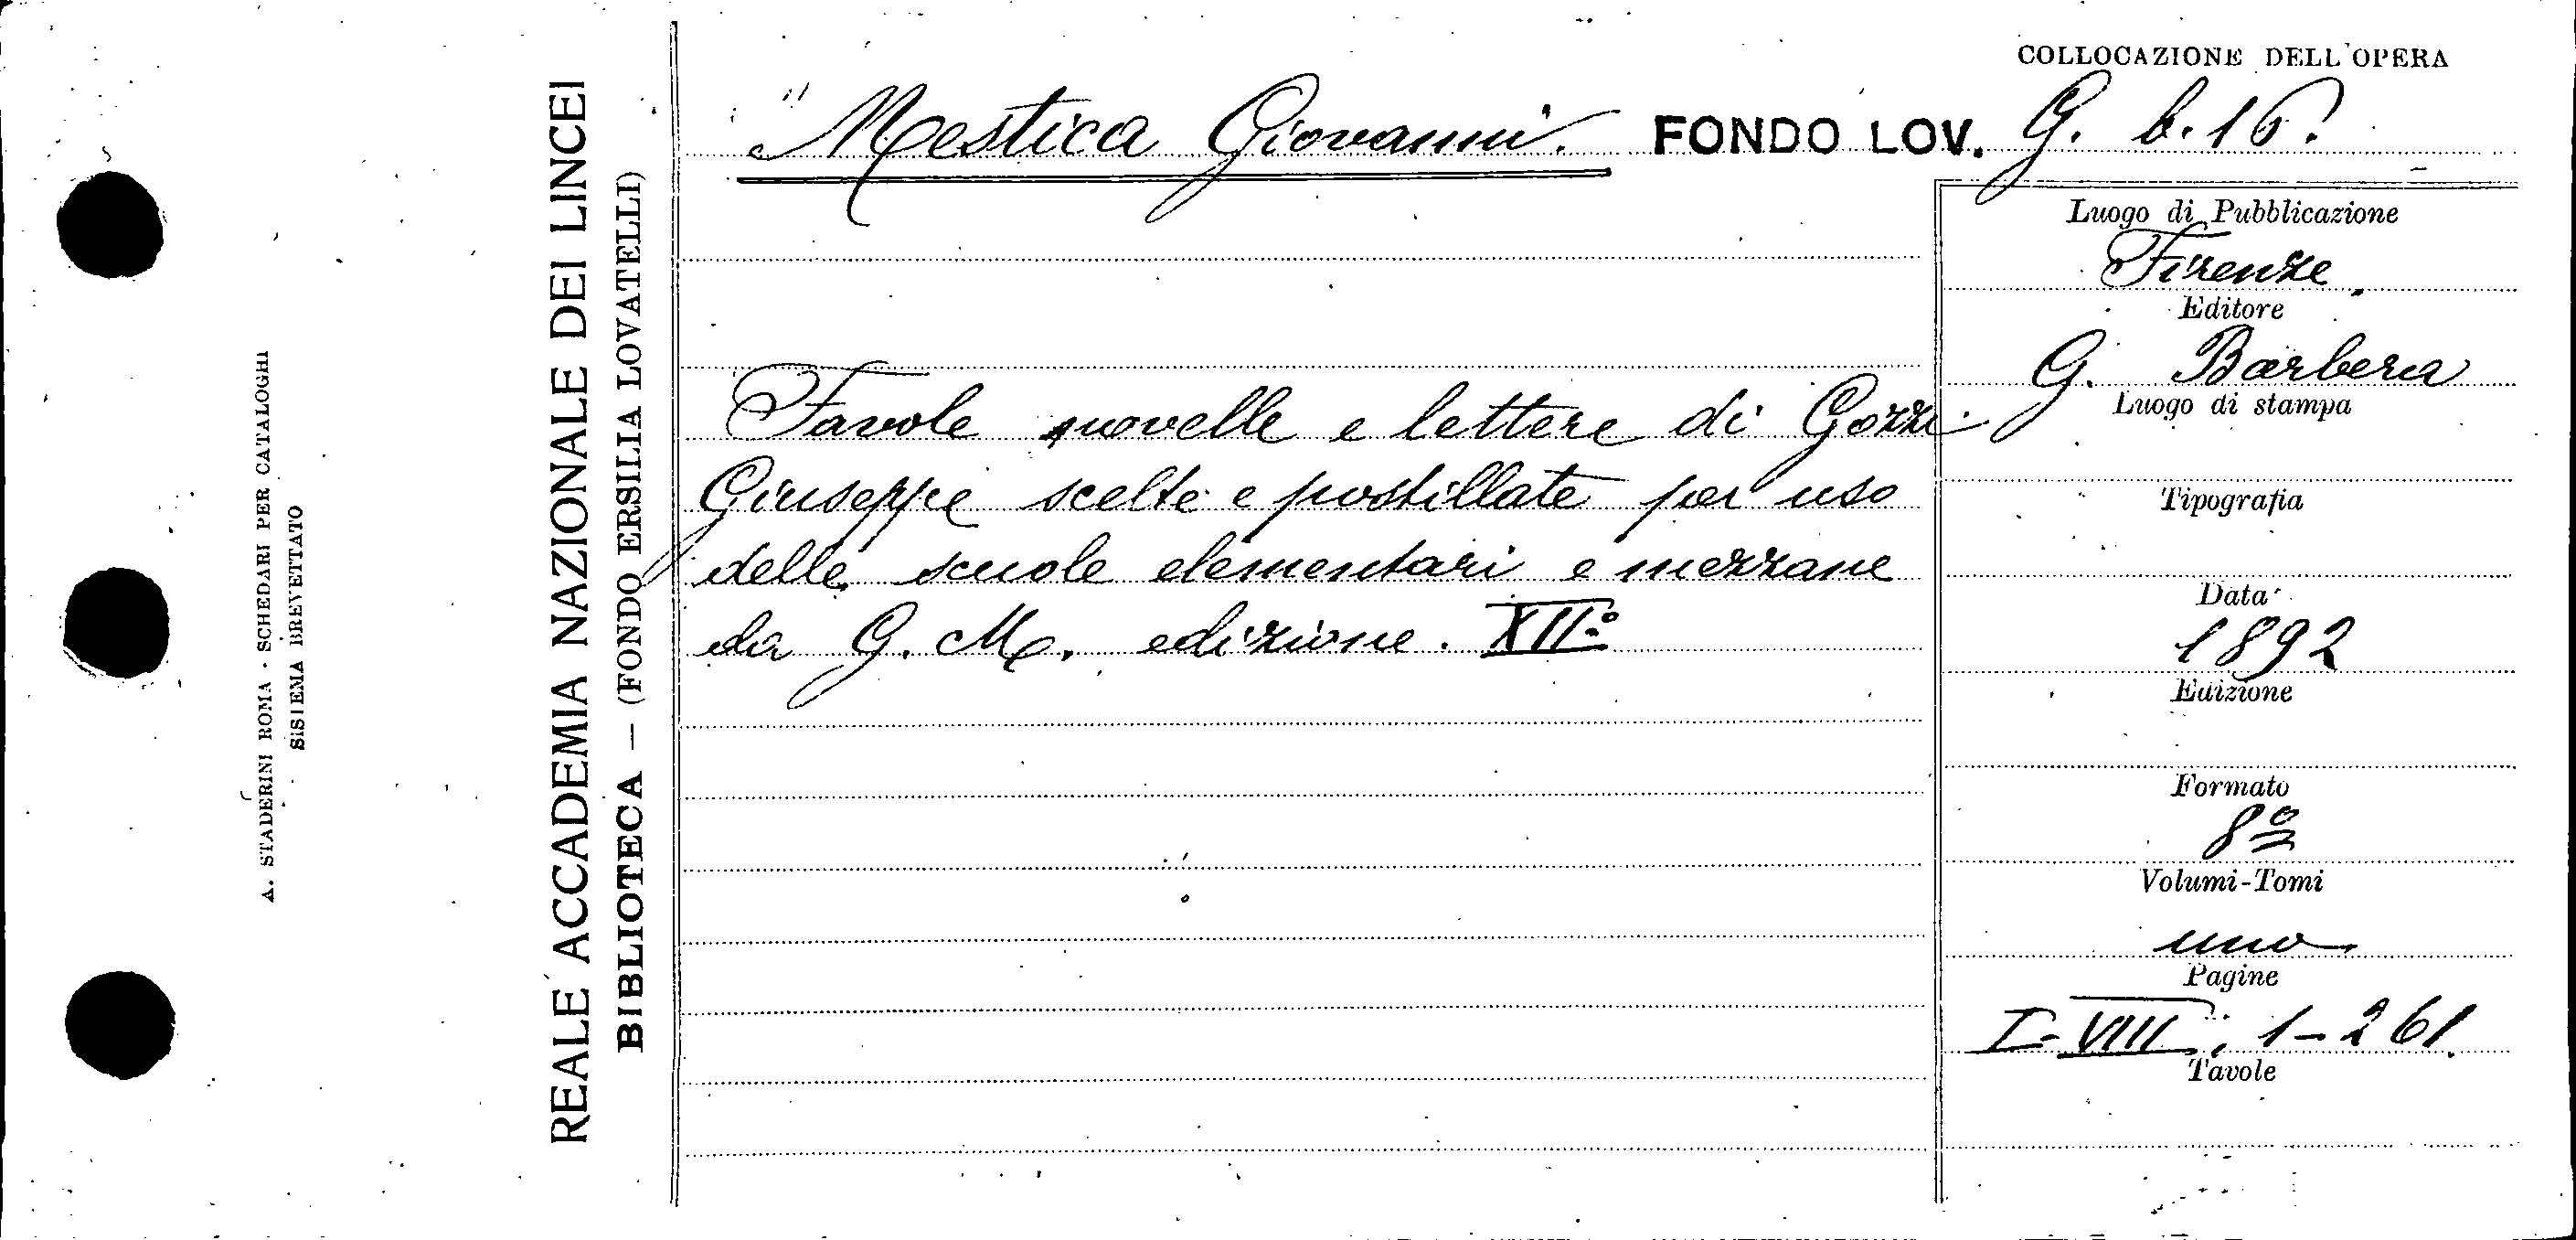 COLLOCAZIONE DELL'OPERA
Mestica Giovanni. FONDO LOV. G. b. 16.
Favole novelle e lettere di Gozzi
Giuseppe scelte e postillate per uso
delle scuole elementari e mezzane
da G. M. edizione. XIIº
Luogo di Pubblicazione
Firenze.
Editore
G. Barbera
Luogo di stampa
Tipografia
Data
1892
Edizione
Formato
8º
Volumi-Tomi
uno
Pagine
I-VIII; 1-261.
Tavole
REALE ACCADEMIA NAZIONALE DEI LINCEI
BIBLIOTECA — (FONDO ERSILIA LOVATELLI)
A. STADERINI ROMA - SCHEDARI PER CATALOGHI
SISTEMA BREVETTATO